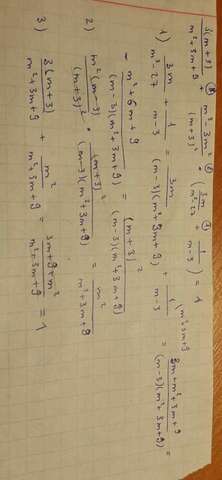 3(m+3)/(m²+3m+9) + ③ (m³-3m²)/(m+3)² ② · (3m/(m³-27) ① + 1/(m-3)) = 1
1) 3m/(m³-27) + 1/(m-3) = 3m/((m-3)(m²+3m+9)) + 1/(m-3) (m²+3m+9 = (3m+m²+3m+9)/((m-3)(m²+3m+9)) =
= (m²+6m+9)/((m-3)(m²+3m+9)) = (m+3)²/((m-3)(m²+3m+9))
2) m²(m-3)/(m+3)² · (m+3)²/((m-3)(m²+3m+9)) = m²/(m²+3m+9)
3) 3(m+3)/(m²+3m+9) + m²/(m²+3m+9) = (3m+9+m²)/(m²+3m+9) = 1